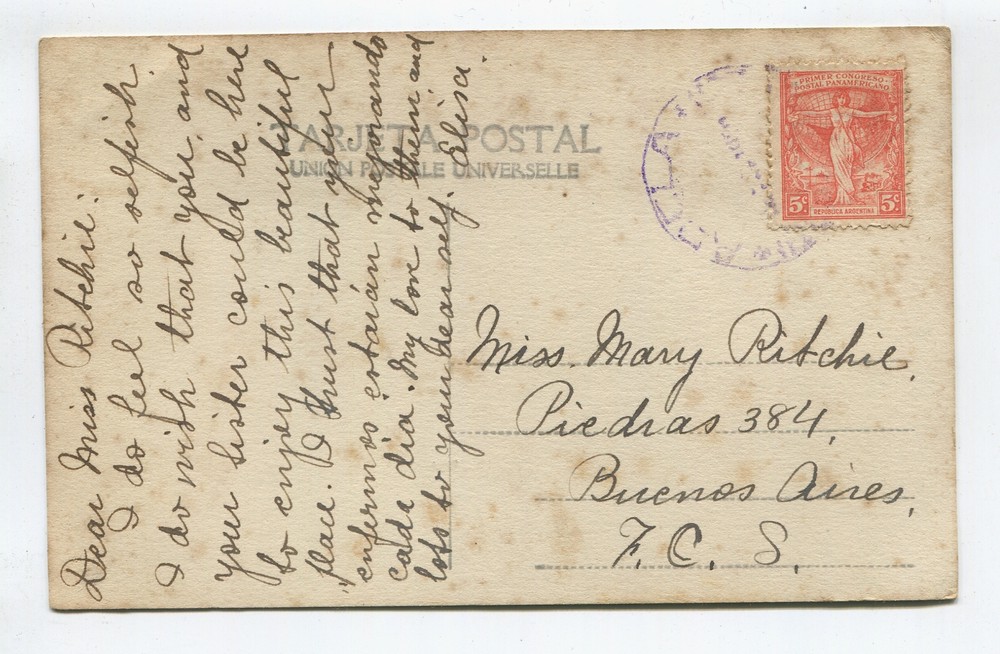 Dear Miss Ritchie:
I do feel so selfish.
I do wish that you, and
your sister could be here
to enjoy this beautiful
place. I trust that your
"enfermos estarán mejorando
cada día. My love to them, and
lots to your dear self.
Elisa.
TARJETA POSTAL
UNION POSTALE UNIVERSELLE
PRIMER CONGRESO
POSTAL PANAMERICANO
5c 5c
REPUBLICA ARGENTINA
Miss Mary Ritchie,
Piedras 384,
Buenos Aires,
F. C. S.